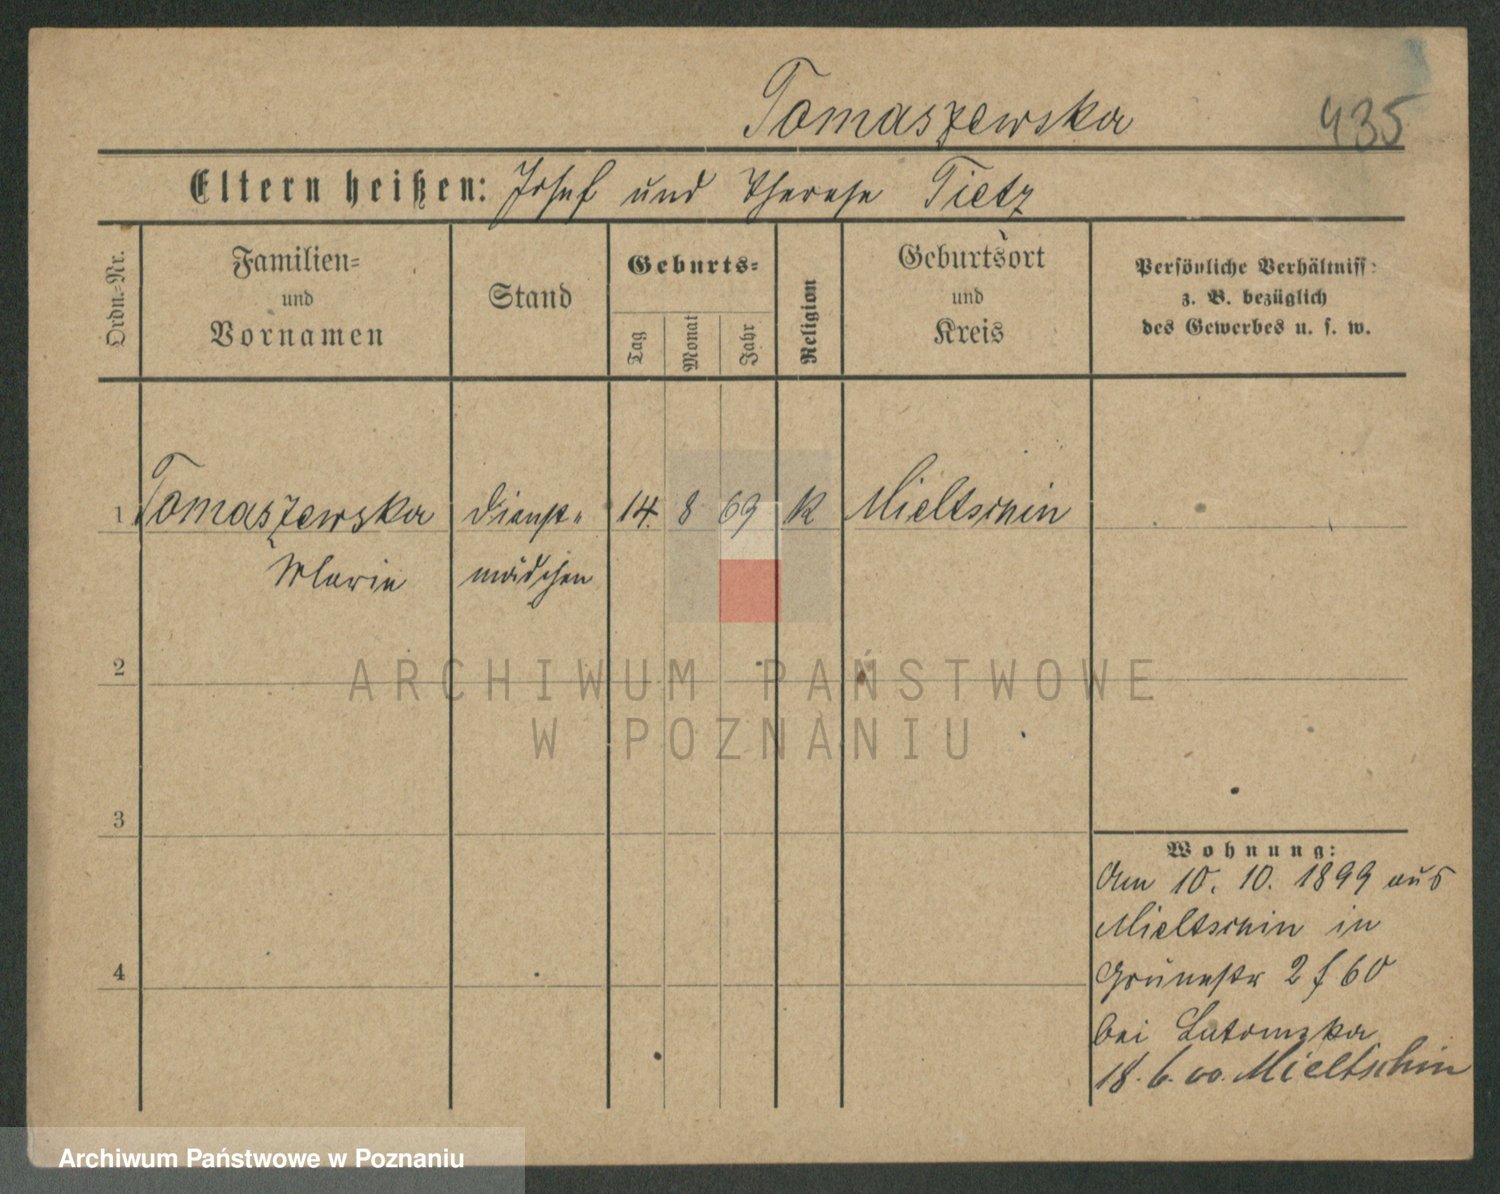 Tomaszewska
435
Eltern heißen: Josef und Therese Tietz
Ordn.-Nr.
Familien-
und
Vornamen
Stand
Geburts-
Tag
Monat
Jahr
Religion
Geburtsort
und
Kreis
Persönliche Verhältniss
z. B. bezüglich
des Gewerbes u. s. w.
1 Tomaszewska Dienst- 14. 8 69 K Mieltschin
Marie mädchen
2
3
4
Wohnung:
Am 10. 10. 1899 aus
Mieltschin in
Grünestr 2 f 60
bei Latomska
18. 6. 00. Mieltschin
ARCHIWUM PAŃSTWOWE
W POZNANIU
Archiwum Państwowe w Poznaniu